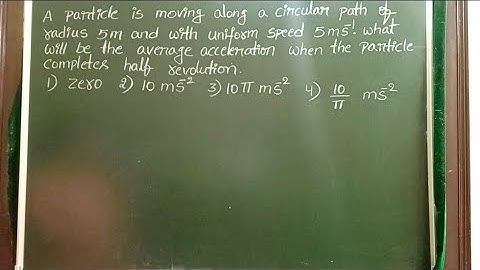 A particle is moving along a circular path of
radius 5m and with uniform speed 5ms⁻¹. what
will be the average acceleration when the particle
completes half revolution.
1) Zero 2) 10 ms⁻² 3) 10π ms⁻² 4) 10/π ms⁻²